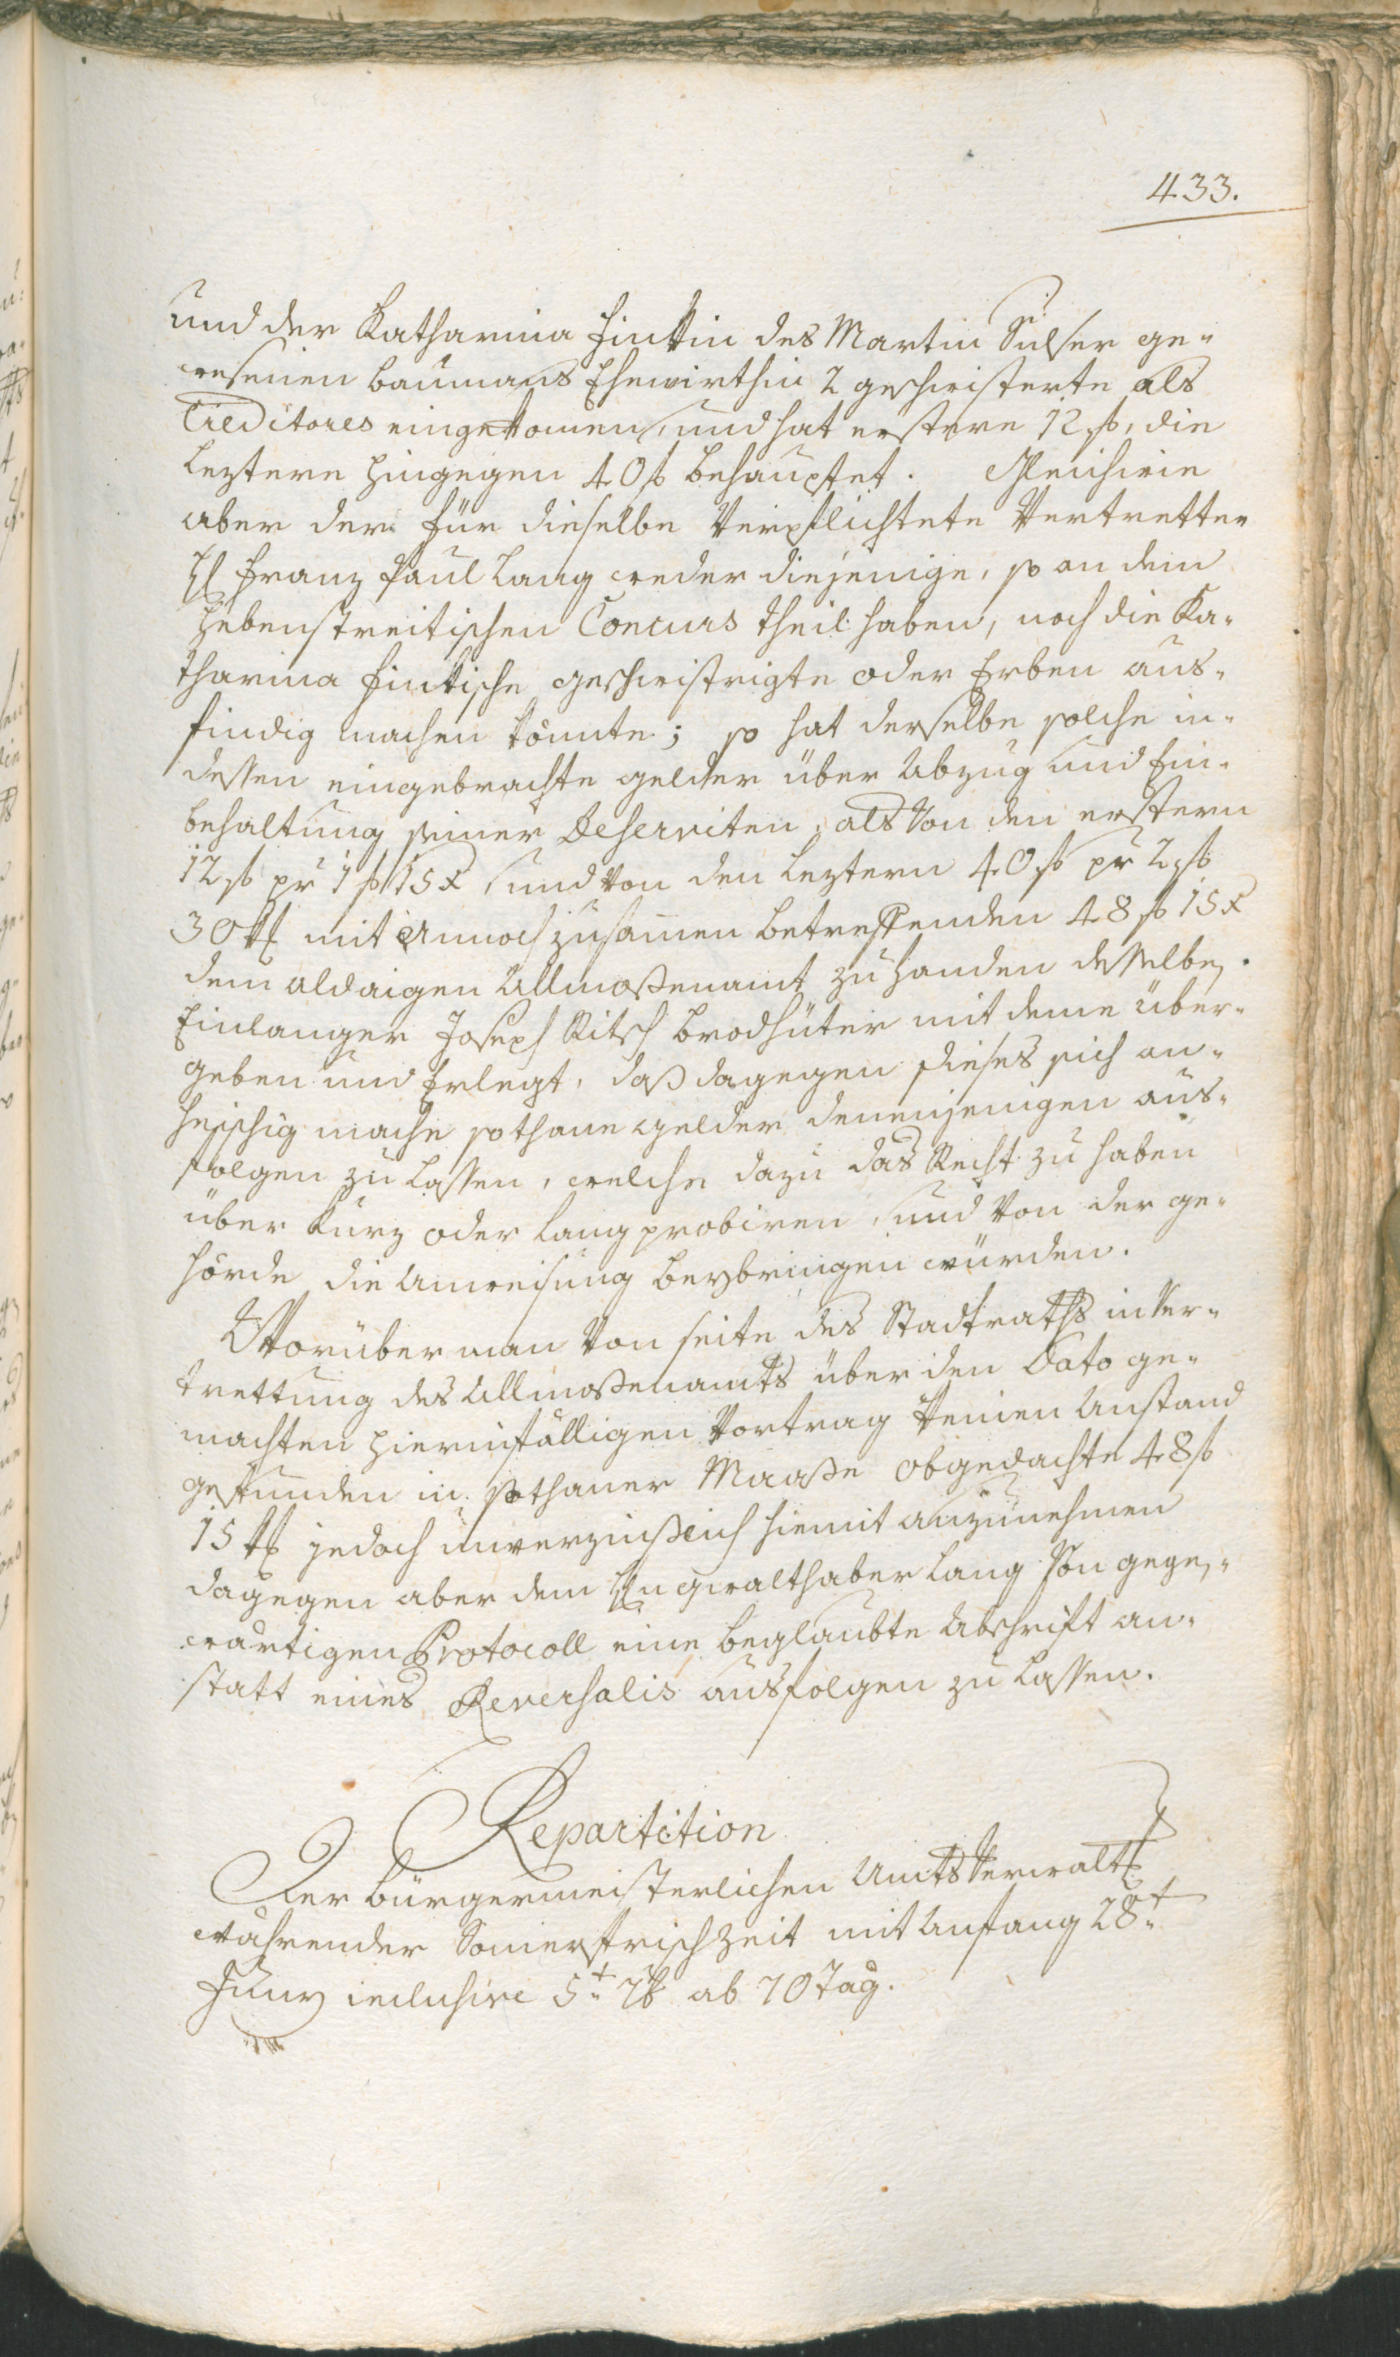 433.
und der Katharina Finkin des Martin Sulser ge-
wesenen baumans Ehewirthin 2 geschwisterte als
Creditores eingekomen, und hat erstere 12 f, die
leztere hingegen 40 f behauptet. Gleichwie
aber der für dieselbe Verpflichtete Vertretter
H franz Paul Lang weder diejenige, so an dem
Hebenstreitischen Concurs theil haben, noch die Ka-
tharina Finkische geschwistrigte oder Erben aus-
findig machen könnte; so hat derselbe solche in-
dessen eingebrachte gelder über Abzug und Ein-
behaltung seiner Deserviten, als Von den erstern
12 f pr 1 f 15 x, und von den leztern 40 f pr 2 f
30 x mit annoch zusamen betreffenden 48 f 15 x
dem aldaigen Allmoßenamt zu handen desselben
Einlanger Joseph Ritsch brodhüter mit deme über-
geben und Erlegt, daß dagegen dieses sich an-
heischig mache sothane gelder denenjenigen aus-
folgen zu lassen, welche dazu das Recht zu haben
über kurz oder lang probiren, und Von der ge-
hörde die Anweisung beybringen würden.
Worüber man Von seite des Stadtraths in Ver-
trettung des Allmoßenamts über den Dato ge-
machten hierinfälligen Vortrag keinen Anstand
gefunden in sothaner Maaße obgedachte 48 f
15 x jedoch unverzinßlich hiemit anzunehmen
dagegen aber dem Hn gwalthaber Lang Von gegen-
wärtigen Protocoll eine beglaubte Abschrift an-
statt eines Reversalis ausfolgen zu lassen.
Repartition
Der bürgermeisterlichen Amts Verwalt
währender Somerfrischzeit mit Anfang 28t
Juny inclusive 5t 7b ab 70 Tag.